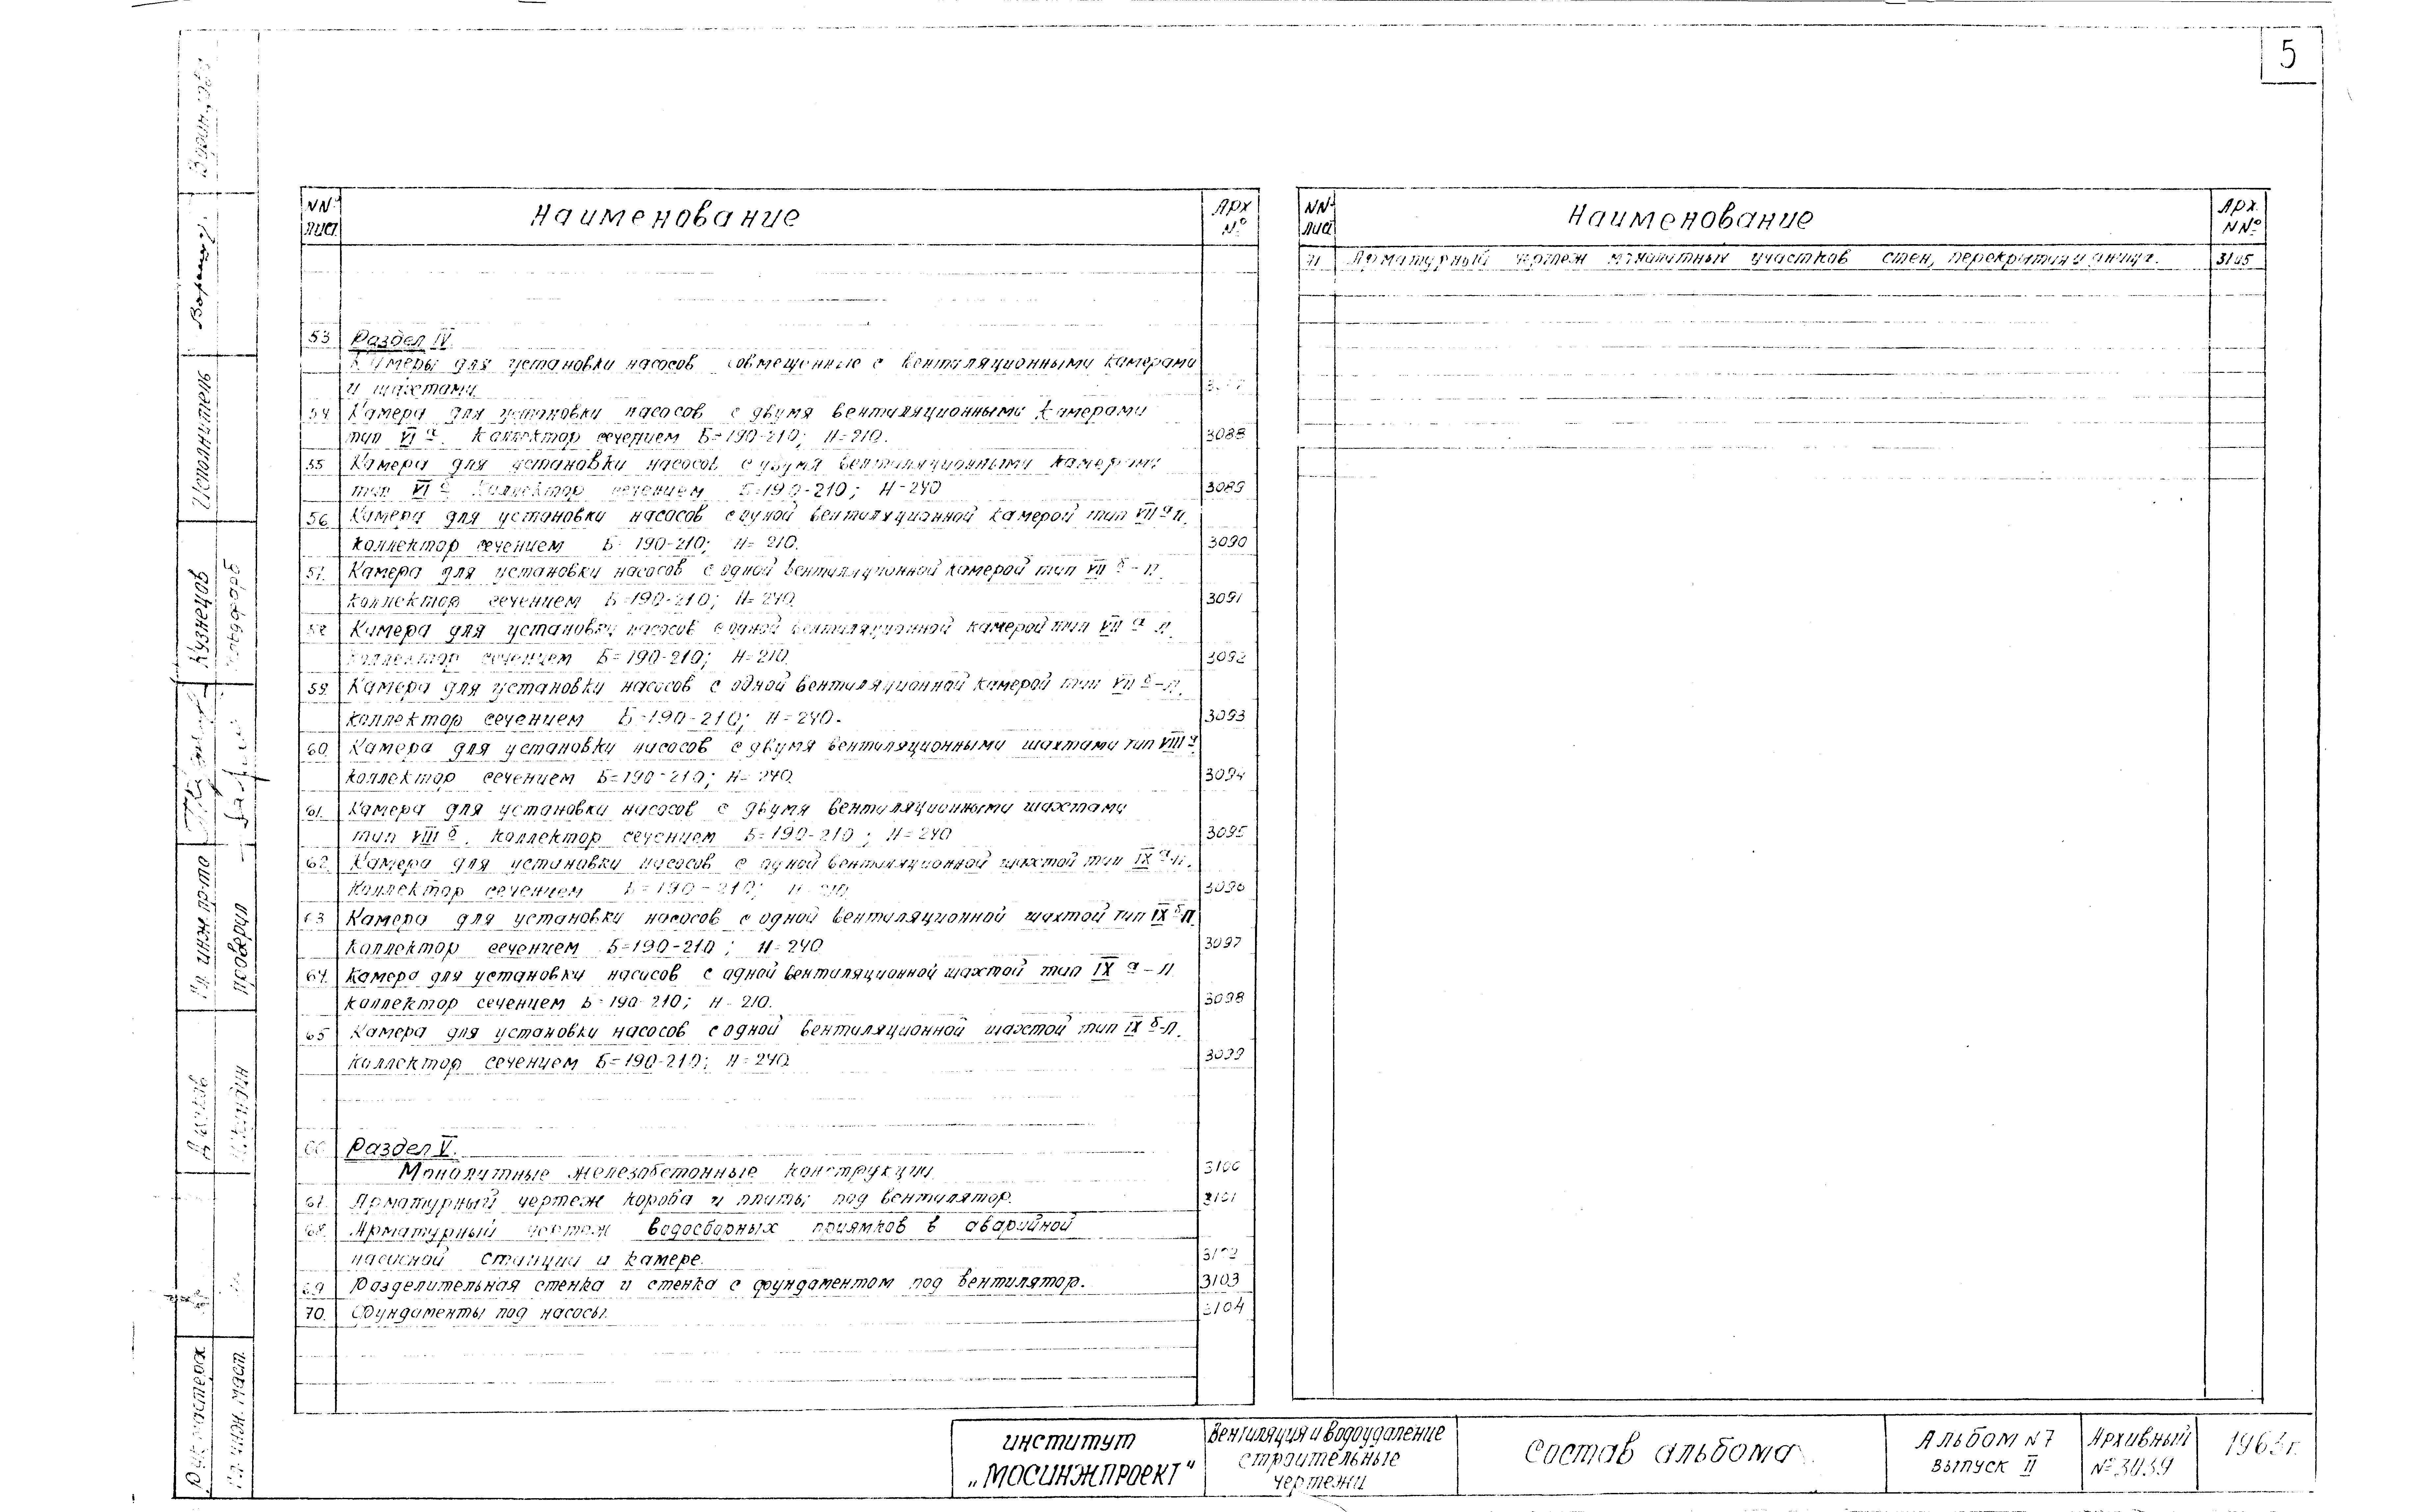 5
NN° лист. Наименование Арх N°
53 Раздел IV
Камеры для установки насосов совмещенные с вентиляционными камерами
и шахтами
54 Камера для установки насосов с двумя вентиляционными камерами
тип VI а. Коллектор сечением Б=190-210; Н=210. 3088
55 Камера для установки насосов с двумя вентиляционными камерами
тип VI б Коллектор сечением Б=190-210; Н=240 3089
56 Камера для установки насосов с одной вентиляционной камерой тип VII а п.
коллектор сечением Б=190-210; Н=210. 3090
57. Камера для установки насосов с одной вентиляционной камерой тип VII б-п.
коллектор сечением Б=190-210; Н=240 3091
58 Камера для установки насосов с одной вентиляционной камерой тип VII а л.
коллектор сечением Б=190-210; Н=210. 3092
59. Камера для установки насосов с одной вентиляционной камерой тип VII б-л.
коллектор сечением Б=190-210; Н=240. 3093
60. Камера для установки насосов с двумя вентиляционными шахтами тип VIII а
коллектор сечением Б=190-210; Н=240. 3094
61. Камера для установки насосов с двумя вентиляционными шахтами
тип VIII б. коллектор сечением Б=190-210; Н=240 3095
62. Камера для установки насосов с одной вентиляционной шахтой тип IX а-п.
Коллектор сечением Б=190-210; 3096
63 Камера для установки насосов с одной вентиляционной шахтой тип IX б п.
коллектор сечением Б=190-210; Н=240 3097
64. Камера для установки насосов с одной вентиляционной шахтой тип IX а-л
коллектор сечением Б=190-210; Н=210. 3098
65 Камера для установки насосов с одной вентиляционной шахтой тип IX б-л.
коллектор сечением Б=190-210; Н=240. 3099
66. Раздел V.
Монолитные железобетонные конструкции 3100
67. Арматурный чертеж короба и плиты под вентилятор. 3101
68. Арматурный чертеж водосборных приямков в аварийной
насосной станции и камере. 3102
69 Разделительная стенка и стенка с фундаментом под вентилятор. 3103
70. Фундаменты под насосы. 3104
NN° лист Наименование Арх. NN°
71 Арматурный чертеж монолитных участков стен, перекрытия и днища. 3105
Исполнитель
Кузнецов
Гл. инж. пр-та
проверил
Рук. мастерск
Гл. инж. маст.
институт
„МОСИНЖПРОЕКТ"
Вентиляция и водоудаление
строительные
чертежи
Состав альбома
Альбом N7
выпуск II
Архивный
N° 3039